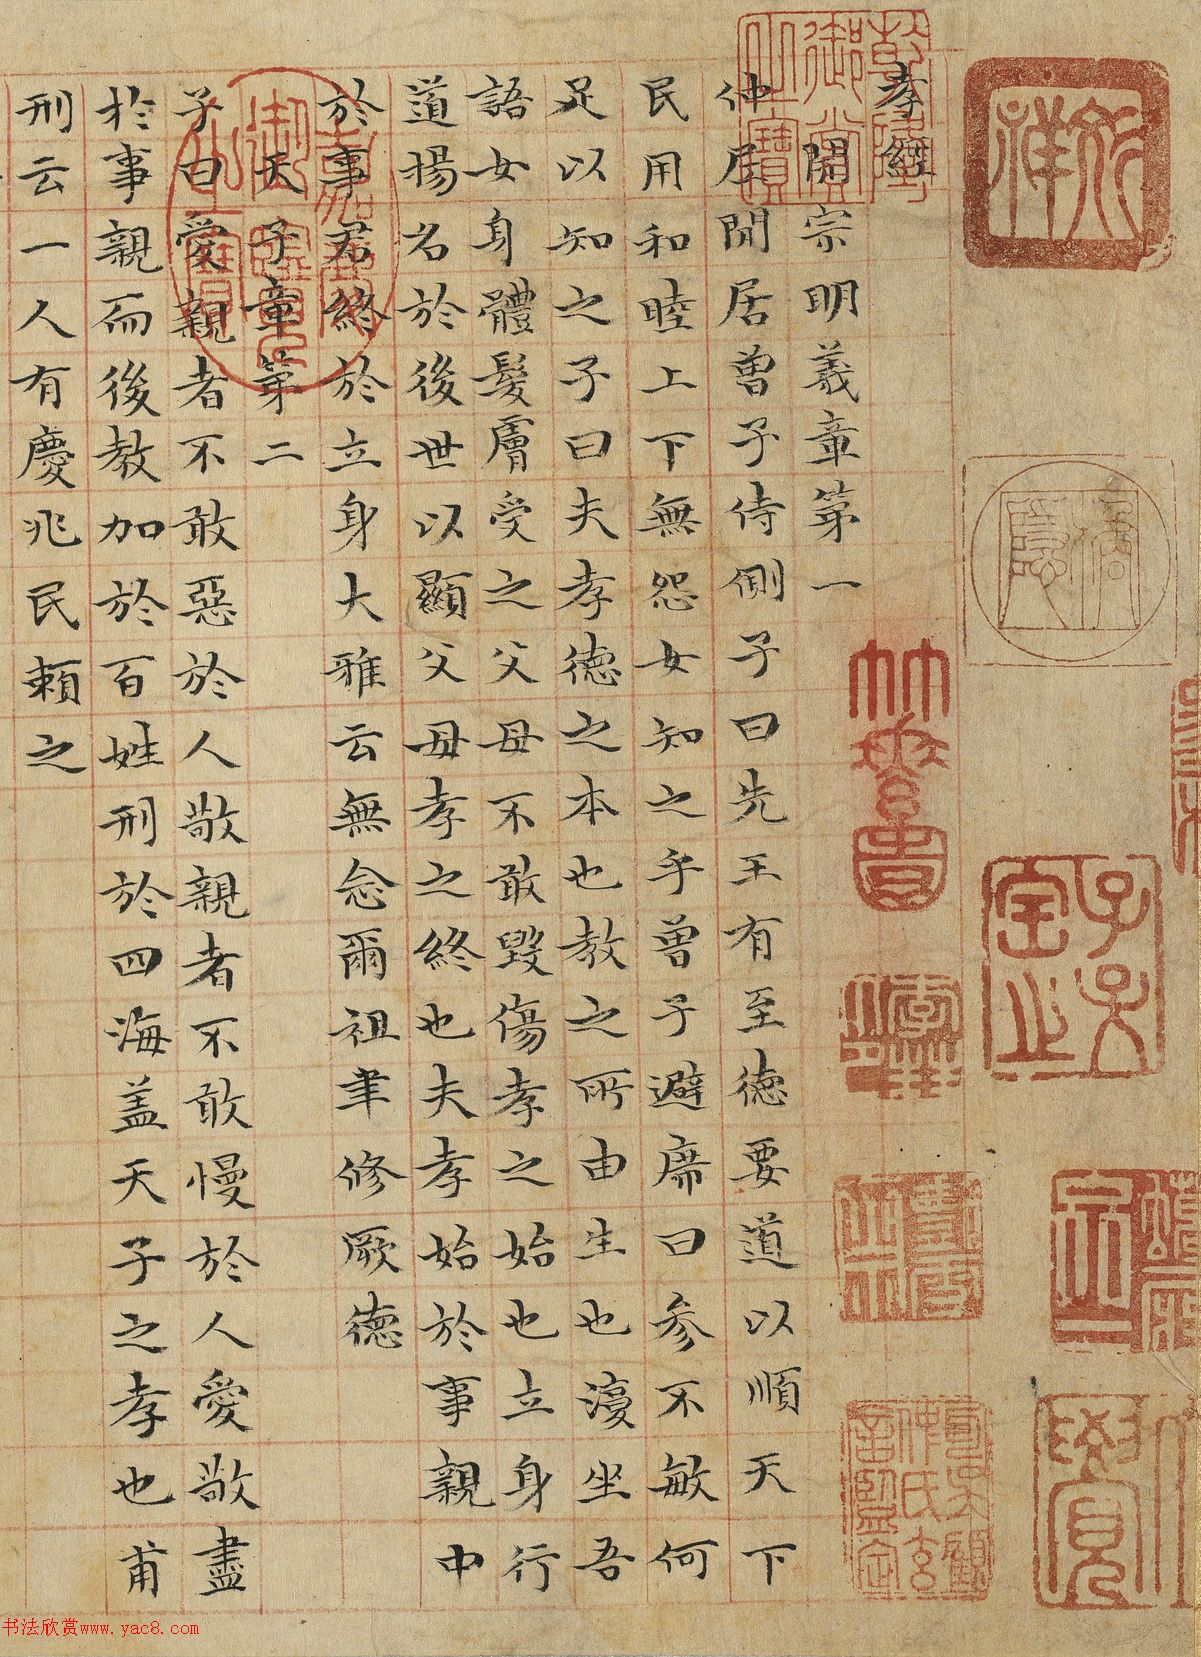 孝經
開宗明義章第一
仲尼閒居曾子侍側子曰先王有至徳要道以順天下
民用和睦上下無怨女知之乎曾子避席曰參不敏何
足以知之子曰夫孝徳之本也教之所由生也復坐吾
語女身體髮膚受之父母不敢毀傷孝之始也立身行
道揚名於後世以顯父母孝之終也夫孝始於事親中
於事君終於立身大雅云無念爾祖聿修厥徳
天子章第二
子曰愛親者不敢惡於人敬親者不敢慢於人愛敬盡
於事親而後教加於百姓刑於四海蓋天子之孝也甫
刑云一人有慶兆民賴之
乾隆御賞之寶
嘉慶御覽之寶
书法欣赏www.yac8.com